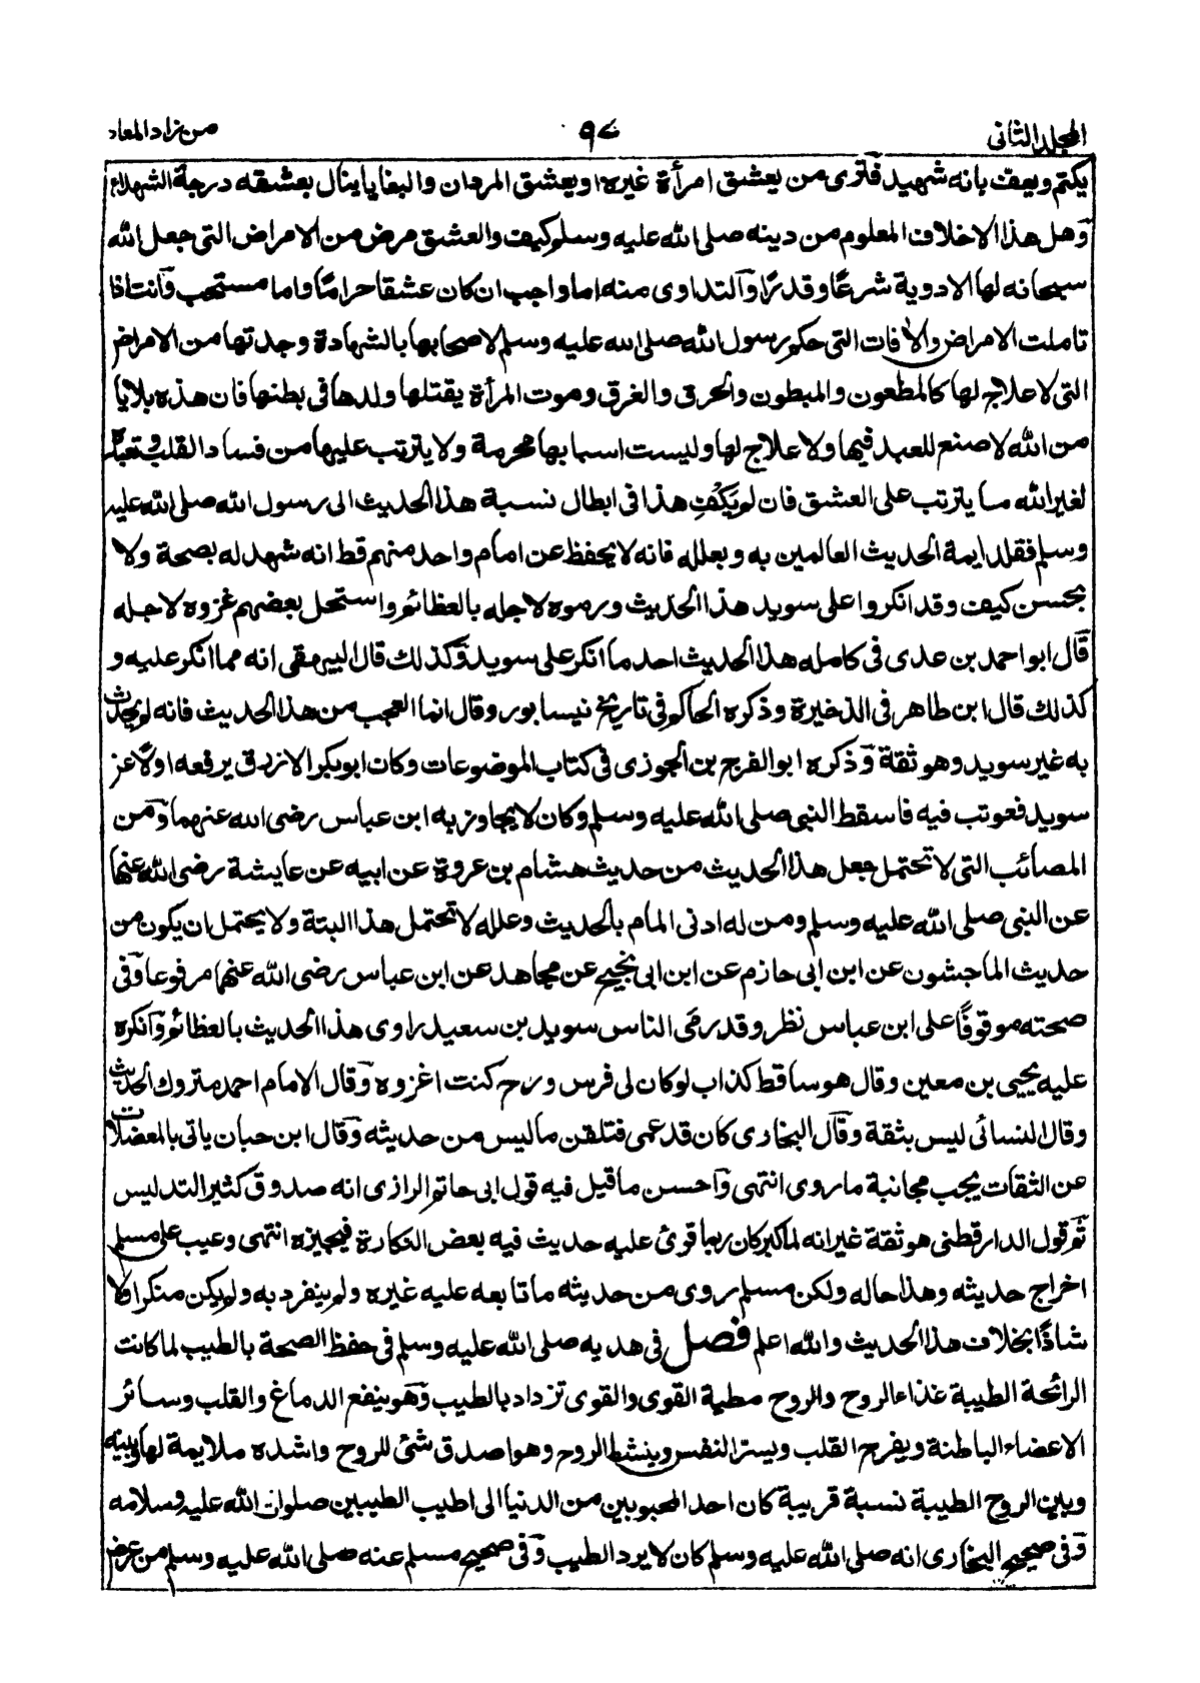 المجلد الثاني
٩٤
من زاد المعاد
يكتم ويعف بانه شهيد فترى من يعشق امرأة غيره او يعشق المردان والبغايا ينال بعشقه درجة الشهداء
وهل هذا الاخلاف المعلوم من دينه صلى الله عليه وسلم كيف والعشق مرض من الامراض التى جعل الله
سبحانه لها الادوية شرعًا وقدرًا والتداوى منه اما واجب ان كان عشقا حرامًا واما مستحب وانت اذا
تاملت الامراض والأفات التى حكم رسول الله صلى الله عليه وسلم لاصحابها بالشهادة وجدتها من الامراض
التى لا علاج لها كالمطعون والمبطون والحرق والغرق وموت المرأة يقتلها ولدها فى بطنها فان هذه بلايا
من الله لا صنع للعبد فيها ولا علاج لها وليست اسبابها محرمة ولا يترتب عليها من فساد القلب وتعبده
لغير الله ما يترتب على العشق فان لم يَكْفِ هذا فى ابطال نسبة هذا الحديث الى رسول الله صلى الله عليه
وسلم فقلد ايمة الحديث العالمين به وبعلله فانه لا يحفظ عن امام واحد منهم قط انه شهد له بصحة ولا
بحسن كيف وقد انكروا على سويد هذا الحديث ورموه لاجله بالعظائم واستحل بعضهم غزوه لاجله
قال ابو احمد بن عدى فى كامله هذا الحديث احد ما انكر على سويد وكذلك قال البيهقى انه مما انكر عليه و
كذلك قال ابن طاهر فى الذخيرة وذكره الحاكم فى تاريخ نيسابور وقال انما العجب من هذا الحديث فانه لم يحدث
به غير سويد وهو ثقة وذكره ابو الفرج بن الجوزى فى كتاب الموضوعات وكان ابو بكر الازرق يرفعه اولًا عن
سويد فعوتب فيه فاسقط النبى صلى الله عليه وسلم وكان لا يجاوز به ابن عباس رضى الله عنهما ومن
المصائب التى لا تحتمل جعل هذا الحديث من حديث هشام بن عروة عن ابيه عن عايشة رضى الله عنها
عن النبى صلى الله عليه وسلم ومن له ادنى المام بالحديث وعلله لا تحتمل هذا البتة ولا يحتمل ان يكون من
حديث الماجشون عن ابن ابى حازم عن ابن ابى نجيح عن مجاهد عن ابن عباس رضى الله عنهما مرفوعا وفى
صحته موقوفًا على ابن عباس نظر وقد رمَى الناس سويد بن سعيد راوى هذا الحديث بالعظائم وانكره
عليه يحيى بن معين وقال هو ساقط كذاب لو كان لى فرس ورمح كنت اغزوه وقال الامام احمد متروك الحديث
وقال النسائى ليس بثقة وقال البخارى كان قد عمى فتلقن ما ليس من حديثه وقال ابن حبان ياتى بالمعضلات
عن الثقات يجب مجانبة ما روى انتهى واحسن ما قيل فيه قول ابى حاتم الرازى انه صدوق كثير التدليس
ثم قول الدارقطنى هو ثقة غير انه لما كبر كان ربما قرئ عليه حديث فيه بعض النكارة فيجيزه انتهى وعيب على مسلم
اخراج حديثه وهذا حاله ولكن مسلم روى من حديثه ما تابعه عليه غيره ولم ينفرد به ولم يكن منكرا ولا
شاذًا بخلاف هذا الحديث والله اعلم فصل فى هديه صلى الله عليه وسلم فى حفظ الصحة بالطيب لما كانت
الرائحة الطيبة غذاء الروح والروح مطية القوى والقوى تزداد بالطيب وهو ينفع الدماغ والقلب وسائر
الاعضاء الباطنة ويفرح القلب ويسر النفس وينشط الروح وهو اصدق شئ للروح واشده ملايمة لها وبينه
وبين الروح الطيبة نسبة قريبة كان احد المحبوبين من الدنيا الى اطيب الطيبين صلوات الله عليه وسلامه
وفى صحيح البخارى انه صلى الله عليه وسلم كان لا يرد الطيب وفى صحيح مسلم عنه صلى الله عليه وسلم من عرض